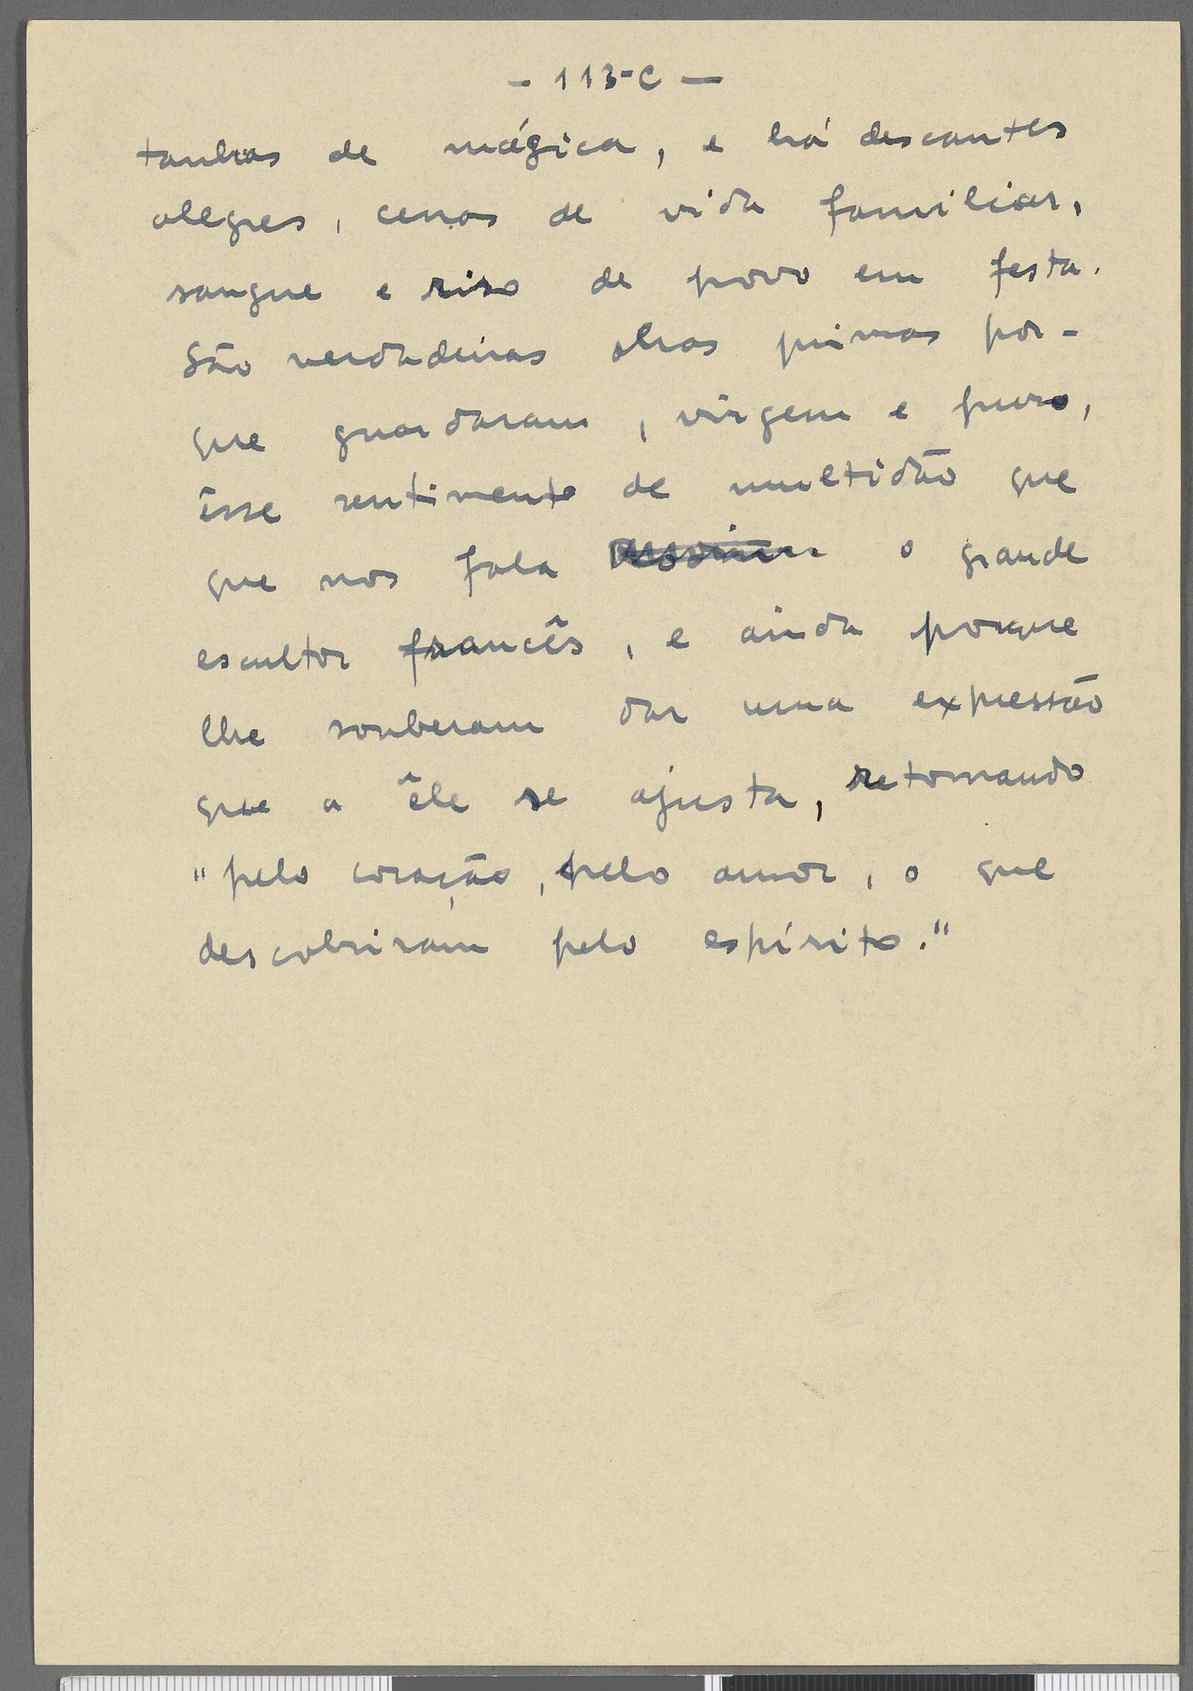 - 113-C -
tanhas de mágica, e há descantes
alegres, cenas de vida familiar,
sangue e riso de povo em festa.
São verdadeiras obras primas por-
que guardaram, virgem e puro,
êsse sentimento de multidão que
que nos fala o grande
escultor francês, e ainda porque
lhe souberam dar uma expressão
que a êle se ajusta, retomando
"pelo coração, pelo amor, o que
descobriram pelo espírito."